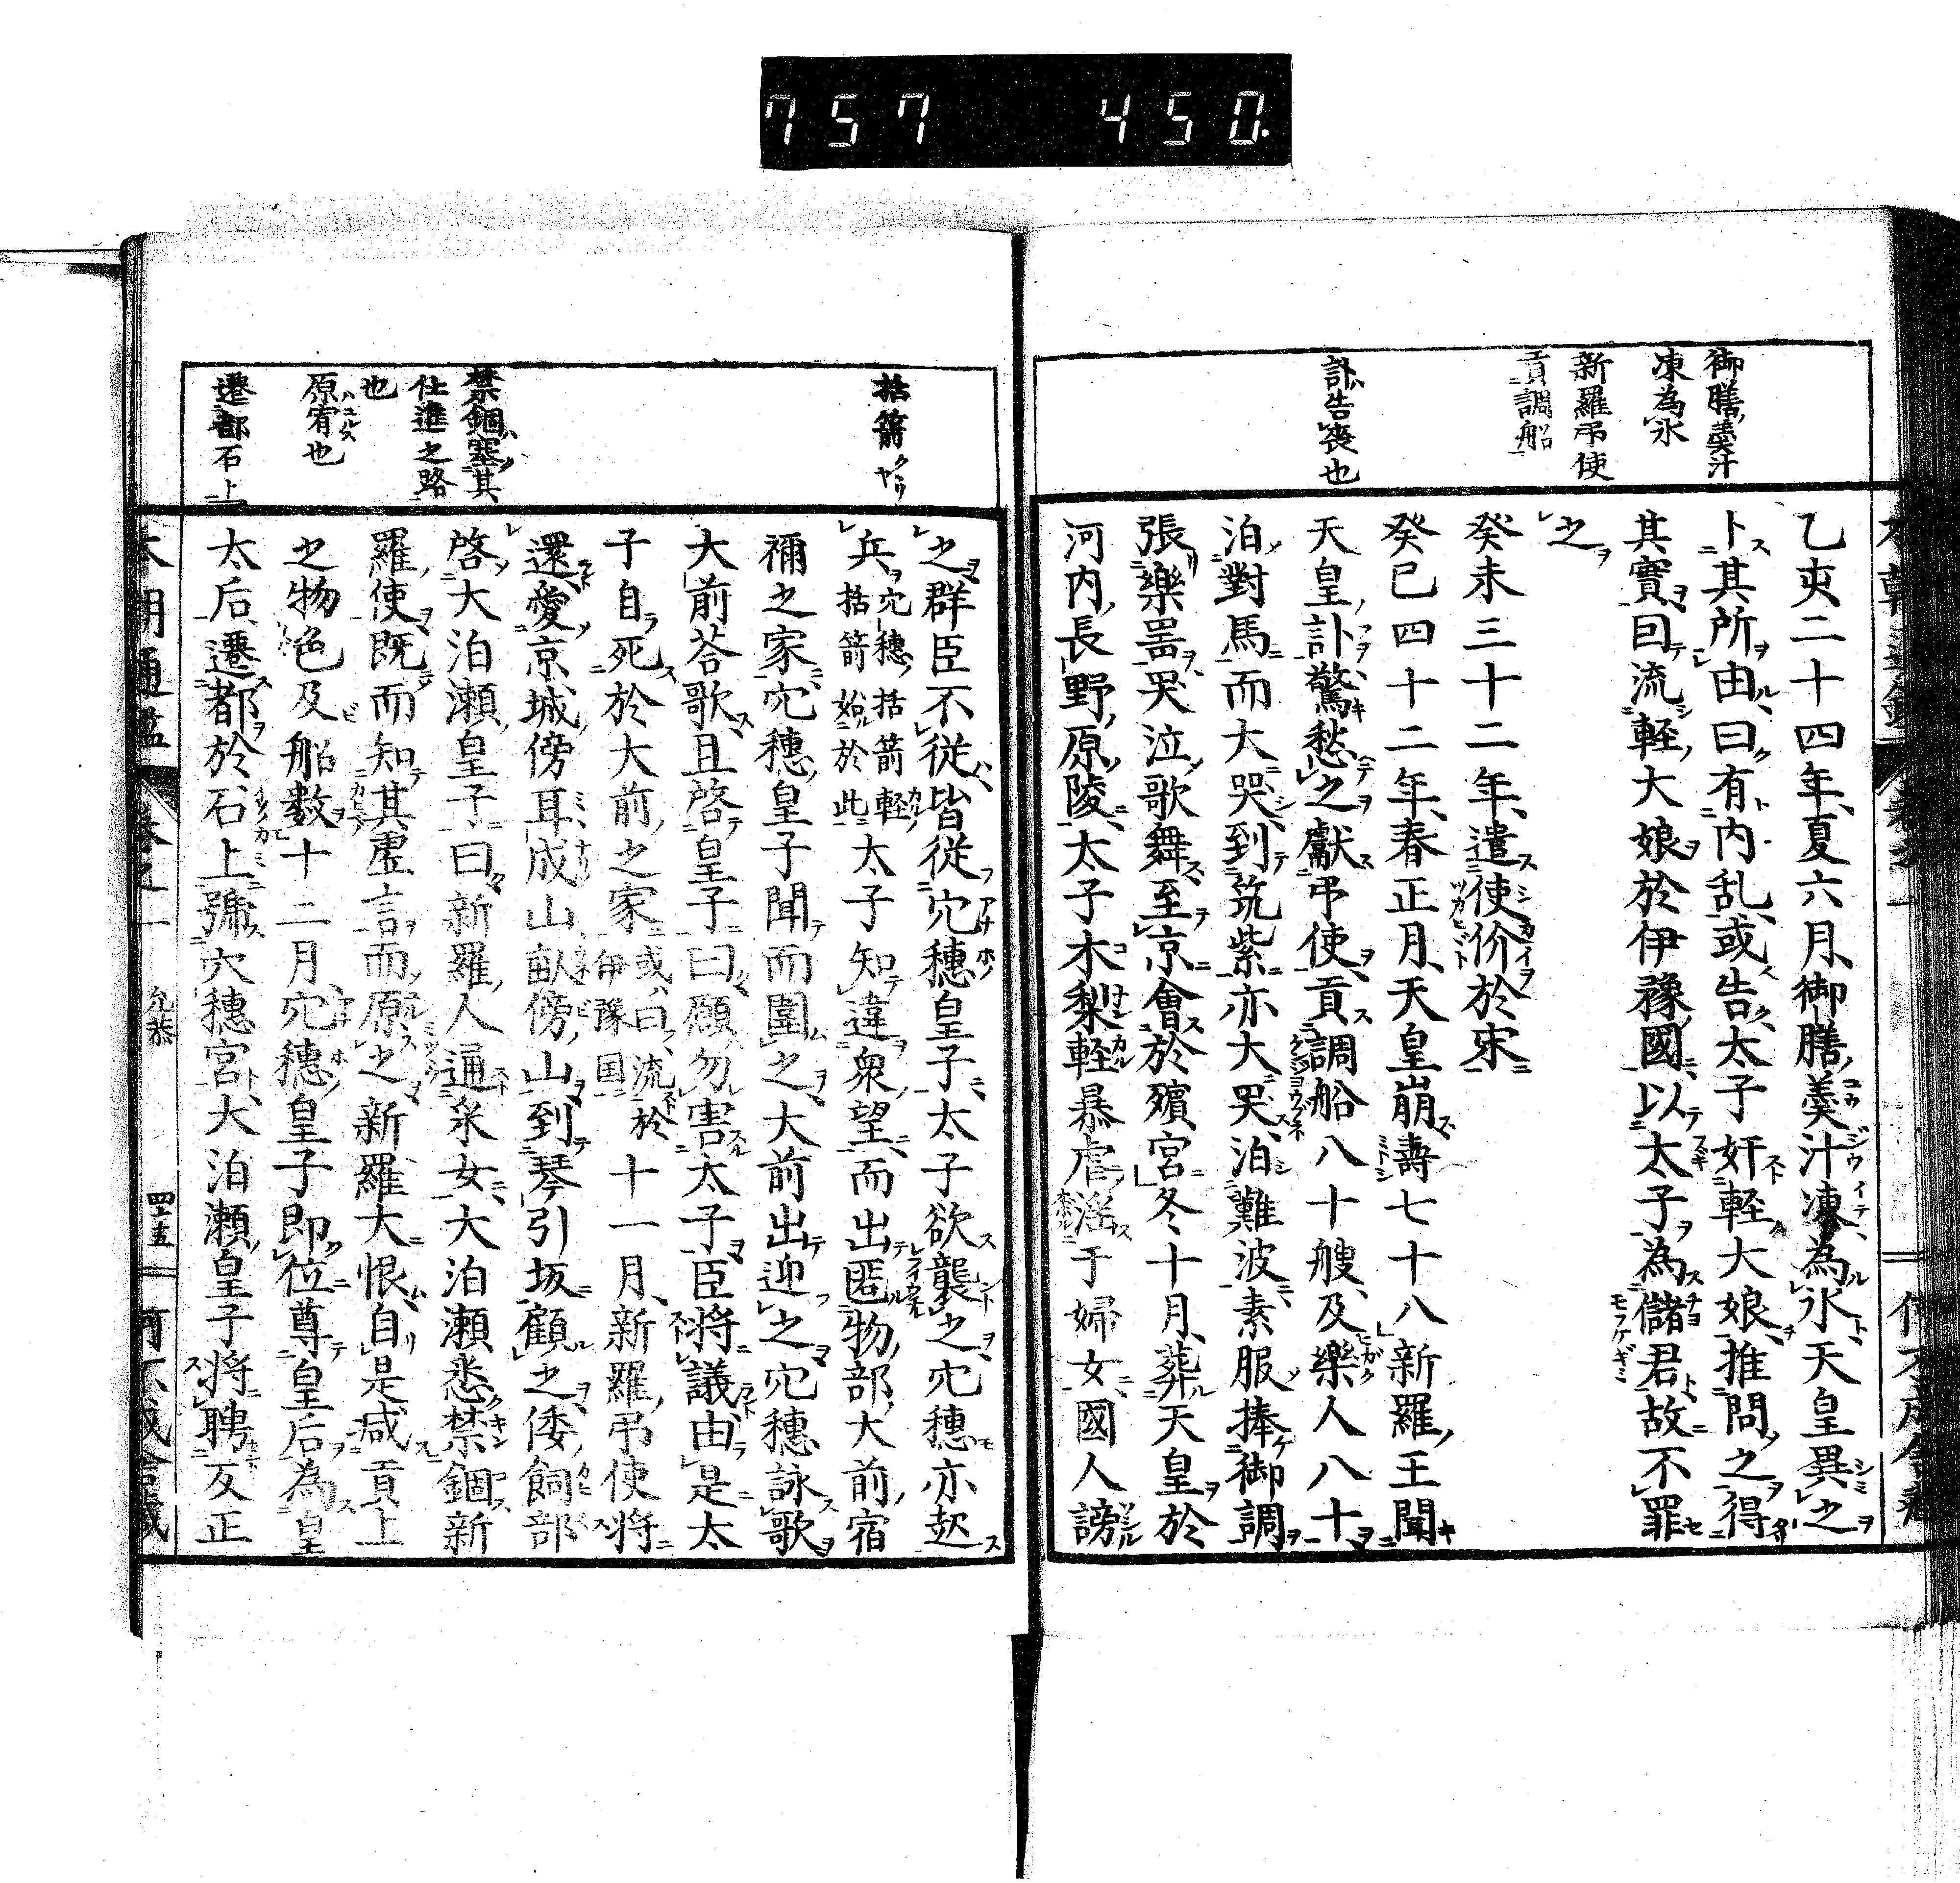 757 450.
御膳羹汁
凍為氷
新羅弔使
貢調船
訃告喪也
乙亥二十四年、夏六月、御膳羹汁凍為氷、天皇異之
卜其所由曰有内乱、或告太子奸軽大娘、推問之得
其實、因流軽大娘於伊豫國、以太子為儲君故不罪
之
癸未三十二年、遣使价於宋
癸巳四十二年、春正月、天皇崩、壽七十八新羅王聞
天皇訃驚愁之獻弔使、貢調船八十艘、及樂人八十
泊對馬而大哭、到筑紫亦大哭、泊難波素服捧御調
張樂噐哭泣歌舞至京會於殯宮冬十月、葬天皇於
河内長野原陵、太子木梨軽暴虐淫于婦女國人謗
括箭
禁錮塞其
仕進之路
也
原宥也
遷都石上
之群臣不従、皆従穴穂皇子、太子欲襲之穴穂亦起
兵穴穂括箭軽括箭始於此太子知違衆望、而出匿物部大前宿
禰之家、穴穂皇子聞而圍之、大前出迎之穴穂詠歌
大前荅歌、且啓皇子曰願勿害太子、臣将議由是太
子自死於大前之家或曰、流於伊豫国十一月、新羅弔使将
還、愛京城傍耳成山畝傍山、到琴引坂顧之、倭飼部
啓大泊瀬皇子曰新羅人通采女、大泊瀬悉禁錮新
羅使既而知其虚言而原之、新羅大恨自是減貢上
之物色及船数十二月、穴穂皇子即位尊皇后為皇
太后、遷都於石上號穴穂宮、大泊瀬皇子将聘反正
本朝通鑑
巻之一
允恭
四十五